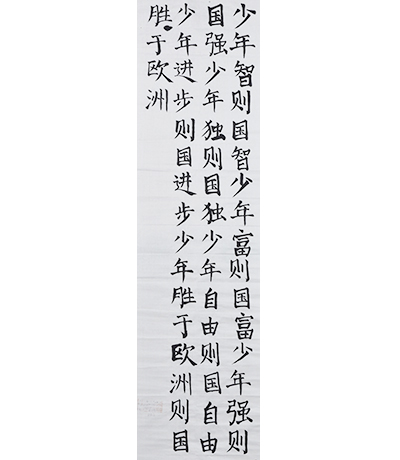 少年智则国智少年富则国富少年强则
国强少年独则国独少年自由则国自由
少年进步则国进步少年胜于欧洲则国
胜于欧洲